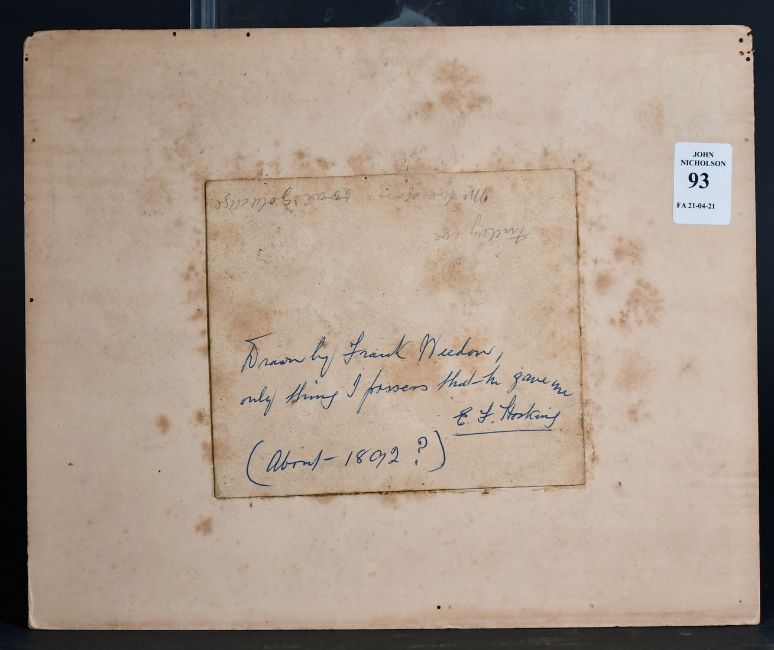 JOHN
NICHOLSON
93
FA 21-04-21
Friday eve
Drawn by Frank Weedon,
only thing I possess that he gave me
E F. Hosking
(About - 1892 ?)